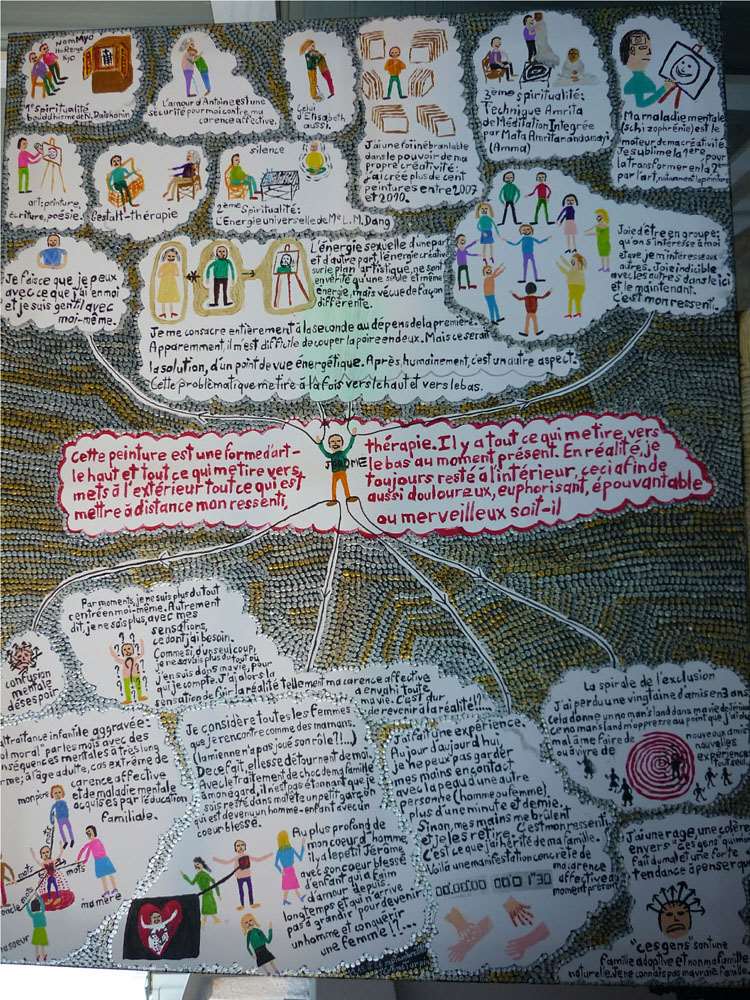 NamMyo
HoRenge
Kyo
1ère spiritualité
bouddhisme de N. Daishonin
L'amour d'Antoine est une
sécurité pour moi contre ma
carence affective.
Celui
d'Elisabeth
aussi.
J'ai une foi inébranlable
dans le pouvoir de ma
propre créativité:
j'ai créé plus de cent
peintures entre 2007
et 2010.
3ème spiritualité:
Technique Amrita
de Méditation Intégrée
par Mata Amritanandamayi
(Amma)
Ma maladie mentale
(schizophrénie) est le
moteur de ma créativité.
Je sublime la 1ère pour
la transformer en la 2ème
par l'art, notamment la peinture
art: peinture,
écriture, poésie.
Gestalt-thérapie
silence
2ème spiritualité:
L'Energie universelle de Me L. M. Dang
Je fais ce que je peux
avec ce que j'ai en moi
et je suis gentil avec
moi-même.
L'énergie sexuelle d'une part
et d'autre part, l'énergie créative
sur le plan artistique, ne sont
en vérité qu'une seule et même
énergie, mais vécue de façon
différente.
Je me consacre entièrement à la seconde au dépens de la première.
Apparemment, il m'est difficile de couper la poire en deux. Mais ce serait
la solution, d'un point de vue énergétique. Après, humainement, c'est un autre aspect.
Cette problématique me tire à la fois vers le haut et vers le bas.
Joie d'être en groupe;
qu'on s'intéresse à moi
et que je m'intéresse aux
autres. Joie indicible
avec les autres dans le ici
et le maintenant.
C'est mon ressenti.
Cette peinture est une forme d'art-
thérapie. Il y a tout ce qui me tire vers
le haut et tout ce qui me tire vers
le bas au moment présent. En réalité, je
mets à l'extérieur tout ce qui est
toujours resté à l'intérieur, ceci afin de
mettre à distance mon ressenti,
aussi douloureux, euphorisant, épouvantable
ou merveilleux soit-il
JEROME
Par moments, je ne suis plus du tout
centré en moi-même. Autrement
dit, je ne sais plus, avec mes
sensations,
ce dont j'ai besoin.
Comme si, d'un seul coup,
je ne savais plus du tout où
j'en suis dans ma vie, pour
qui je compte. J'ai alors la
sensation de fuir la réalité tellement ma carence affective
a envahi toute
ma vie. C'est dur
de revenir à la réalité!!...
confusion
mentale
désespoir
La spirale de l'exclusion
J'ai perdu une vingtaine d'amis en 3 ans
cela donne un no mans land dans ma vie de
ce no mans land m'oppresse au point que j'ai
mal à me faire de nouveaux amis
ou vivre de nouvelles
expériences
tout seul.
Maltraitance infantile aggravée:
moral" par les mots avec des
conséquences mentales à très long
terme; à l'âge adulte, cas extrême de
carence affective
et de maladie mentale
acquises par l'éducation
familiale.
mon père
mots
mots
oncle
ma mère
Je considère toutes les femmes
que je rencontre comme des mamans,
(la mienne n'a pas joué son rôle?!...)
De ce fait, elles se détournent de moi.
Avec le traitement de choc de ma famille
à mon égard, il n'est pas étonnant que je
sois resté dans ma tête un petit garçon
qui est devenu un homme-enfant avec un
coeur blessé.
Au plus profond de
mon coeur d'homme,
il y a le petit Jérôme
avec son coeur blessé
d'enfant qui a faim
d'amour depuis
longtemps et qui n'arrive
pas à grandir pour devenir
un homme et conquérir
une femme!!....
J'ai fait une expérience.
Aujourd'aujourd'hui,
je ne peux pas garder
mes mains en contact
avec la peau d'une autre
personne (homme ou femme)
plus d'une minute et demie.
Sinon, mes mains me brûlent
et je les retire. C'est mon ressenti
C'est ce que j'ai hérité de ma famille.
Voilà une manifestation concrète de
ma carence
affective au
moment présent
00:00:00 00:01'30
J'ai une rage, une colère
envers "ces gens qui m'ont
fait du mal et une forte
tendance à penser à
"ces gens" sont une
famille adoptive et non ma famille
naturelle. Je ne connais pas ma vraie famille